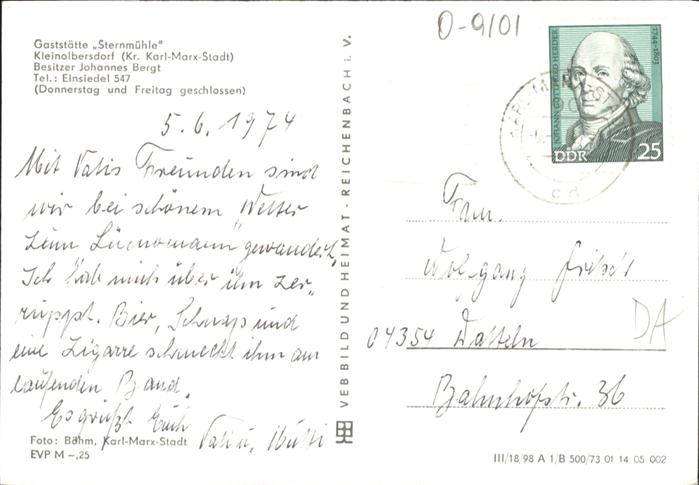 Gaststätte „Sternmühle"
Kleinolbersdorf (Kr. Karl-Marx-Stadt)
Besitzer Johannes Bergt
Tel.: Einsiedel 547
(Donnerstag und Freitag geschlossen)
5.6.1974
Mit Vatis Freunden sind
wir bei schönem Wetter
zum gewandert,
Ich hab mich über ihn zer-
ruppt. Bier, Schnaps und
eine Zigarre schmeckt ihm am
laufenden Band.
Es grüßt Euch
Vati u. Mutti
Foto: Böhm, Karl-Marx-Stadt
EVP M –,25
VEB BILD UND HEIMAT · REICHENBACH i. V.
O-9101
JOHANN GOTTFRIED HERDER
1744-1803
DDR 25
KARL-MARX-ST
cd
Fam.
Wolfgang
04354 Datteln
Bahnhofstr. 36
DA
III/18/98 A 1/B 500/73 01 14 05 002